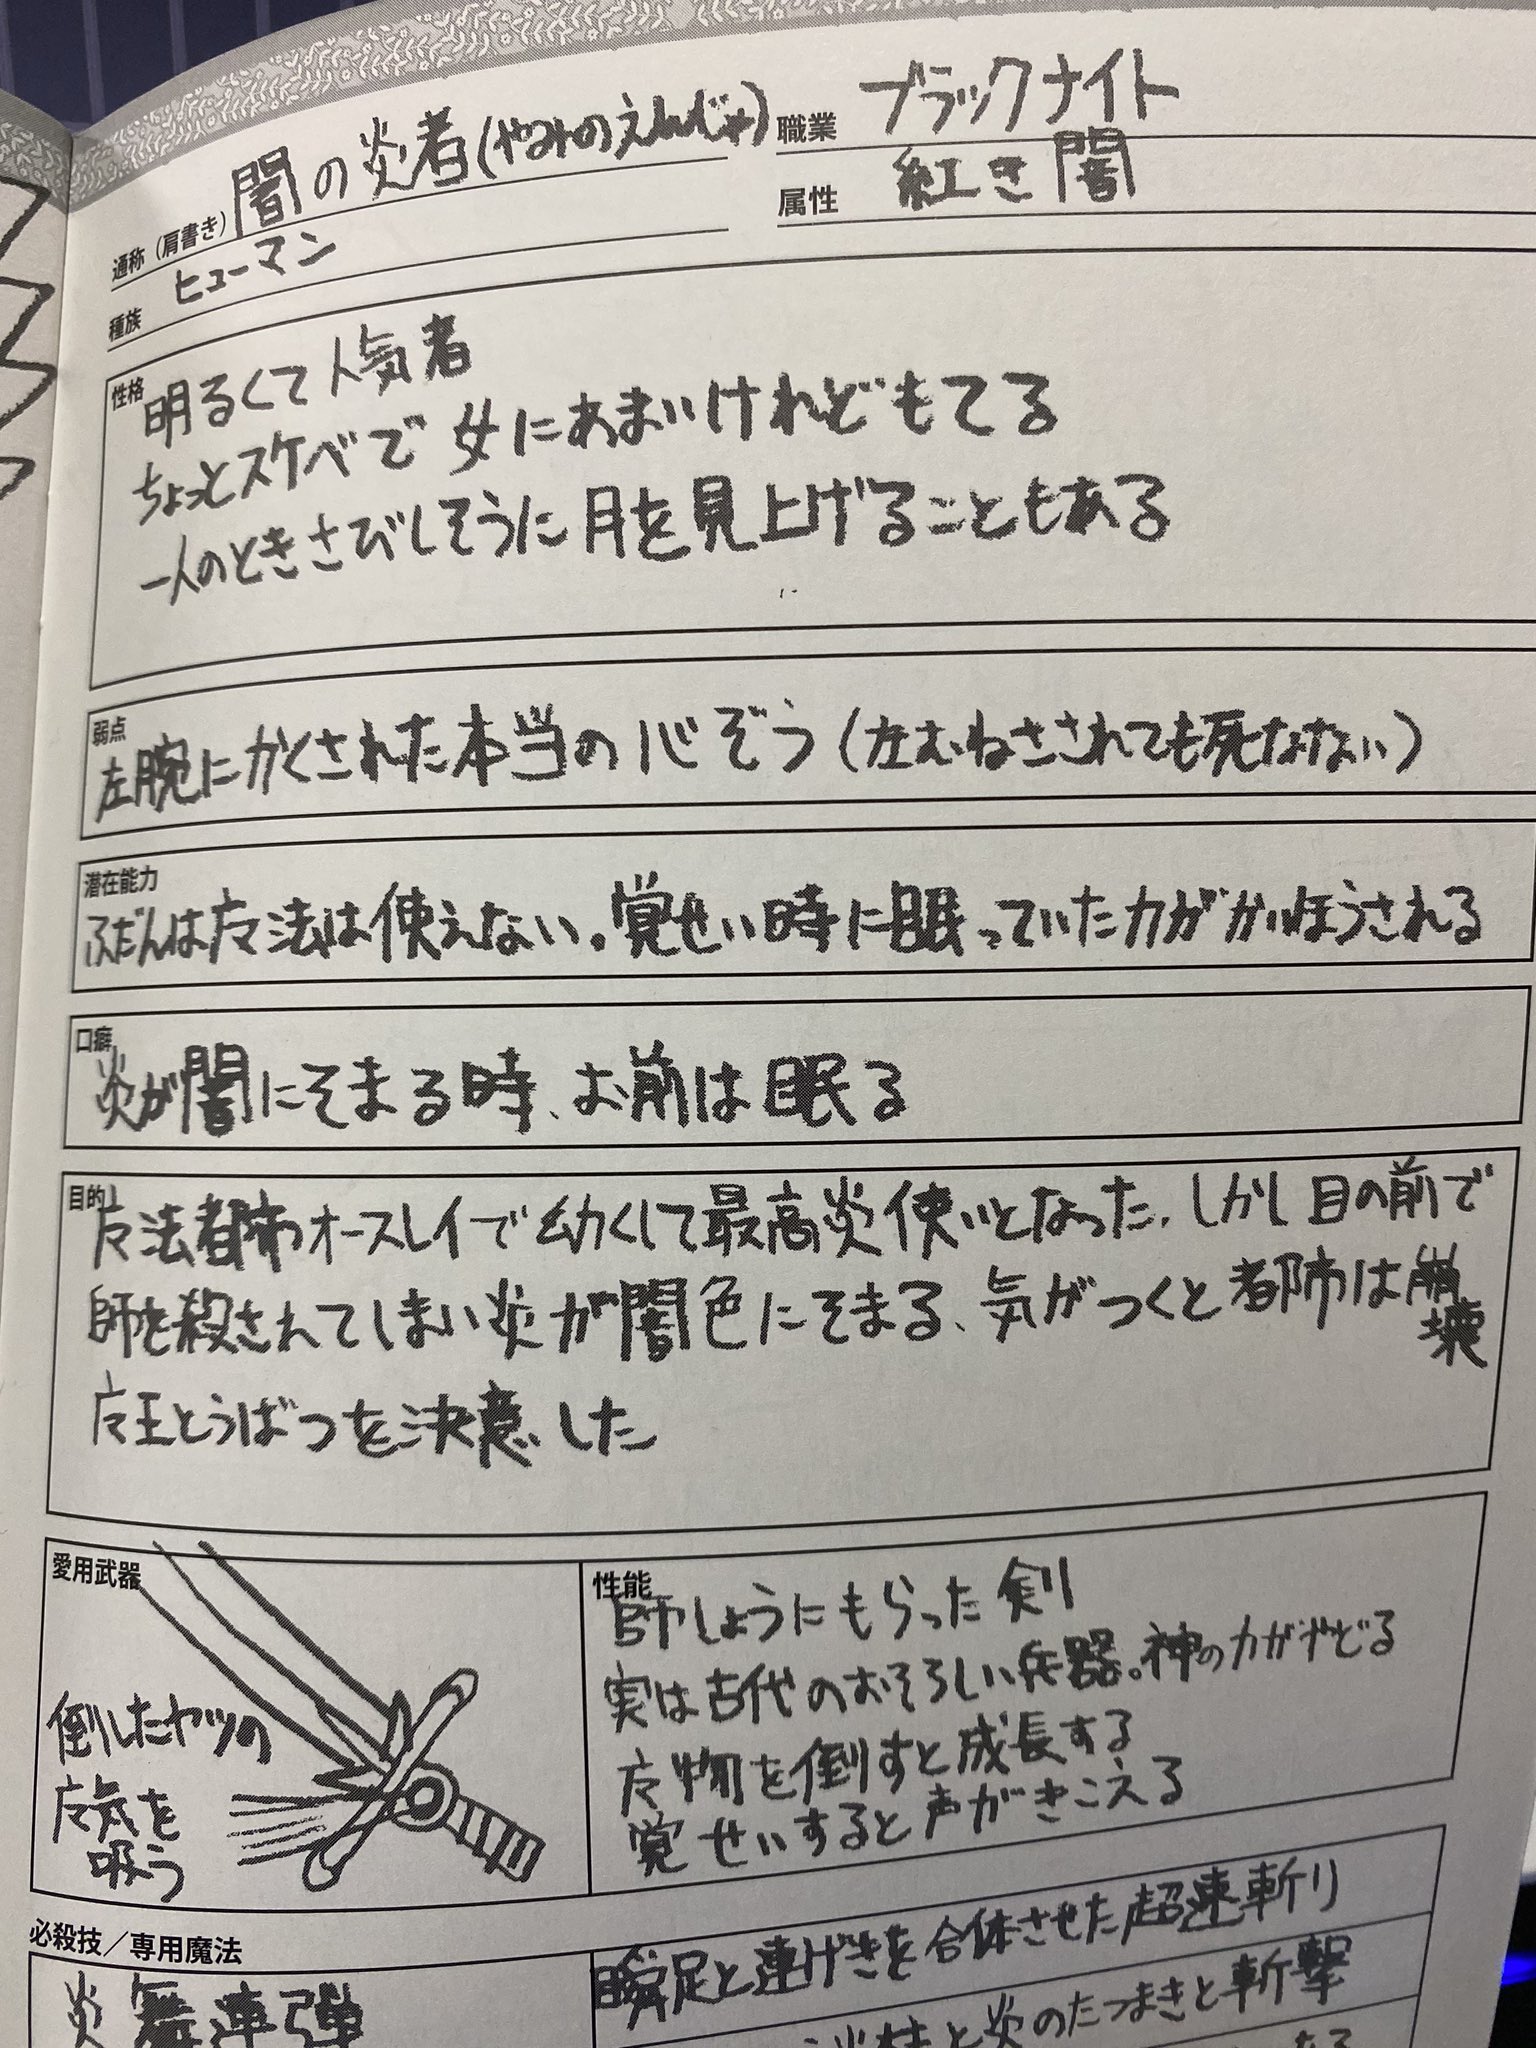 通称（肩書き） 闇の炎者(やみのえんじゃ)
職業 ブラックナイト
種族 ヒューマン
属性 紅き闇
性格
明るくて人気者
ちょっとスケベで女にあまいけれどもてる
一人のときさびしそうに月を見上げることもある
弱点
左腕にかくされた本当の心ぞう(左むねさされても死なない)
潜在能力
ふだんは魔法は使えない。覚せい時に眠っていた力がかいほうされる
口癖
炎が闇にそまる時、お前は眠る
目的
魔法都市オースレイで幼くして最高炎使いとなった、しかし目の前で
師を殺されてしまい炎が闇色にそまる、気がつくと都市は崩壊
魔王とうばつを決意した
愛用武器
倒したヤツの
魔気を
吸う
性能
師しょうにもらった剣
実は古代のおそろしい兵器。神の力がやどる
魔物を倒すと成長する
覚せいすると声がきこえる
必殺技／専用魔法
炎舞連弾
瞬足と連げきを合体させた超速斬り
と炎のたつまきと斬撃